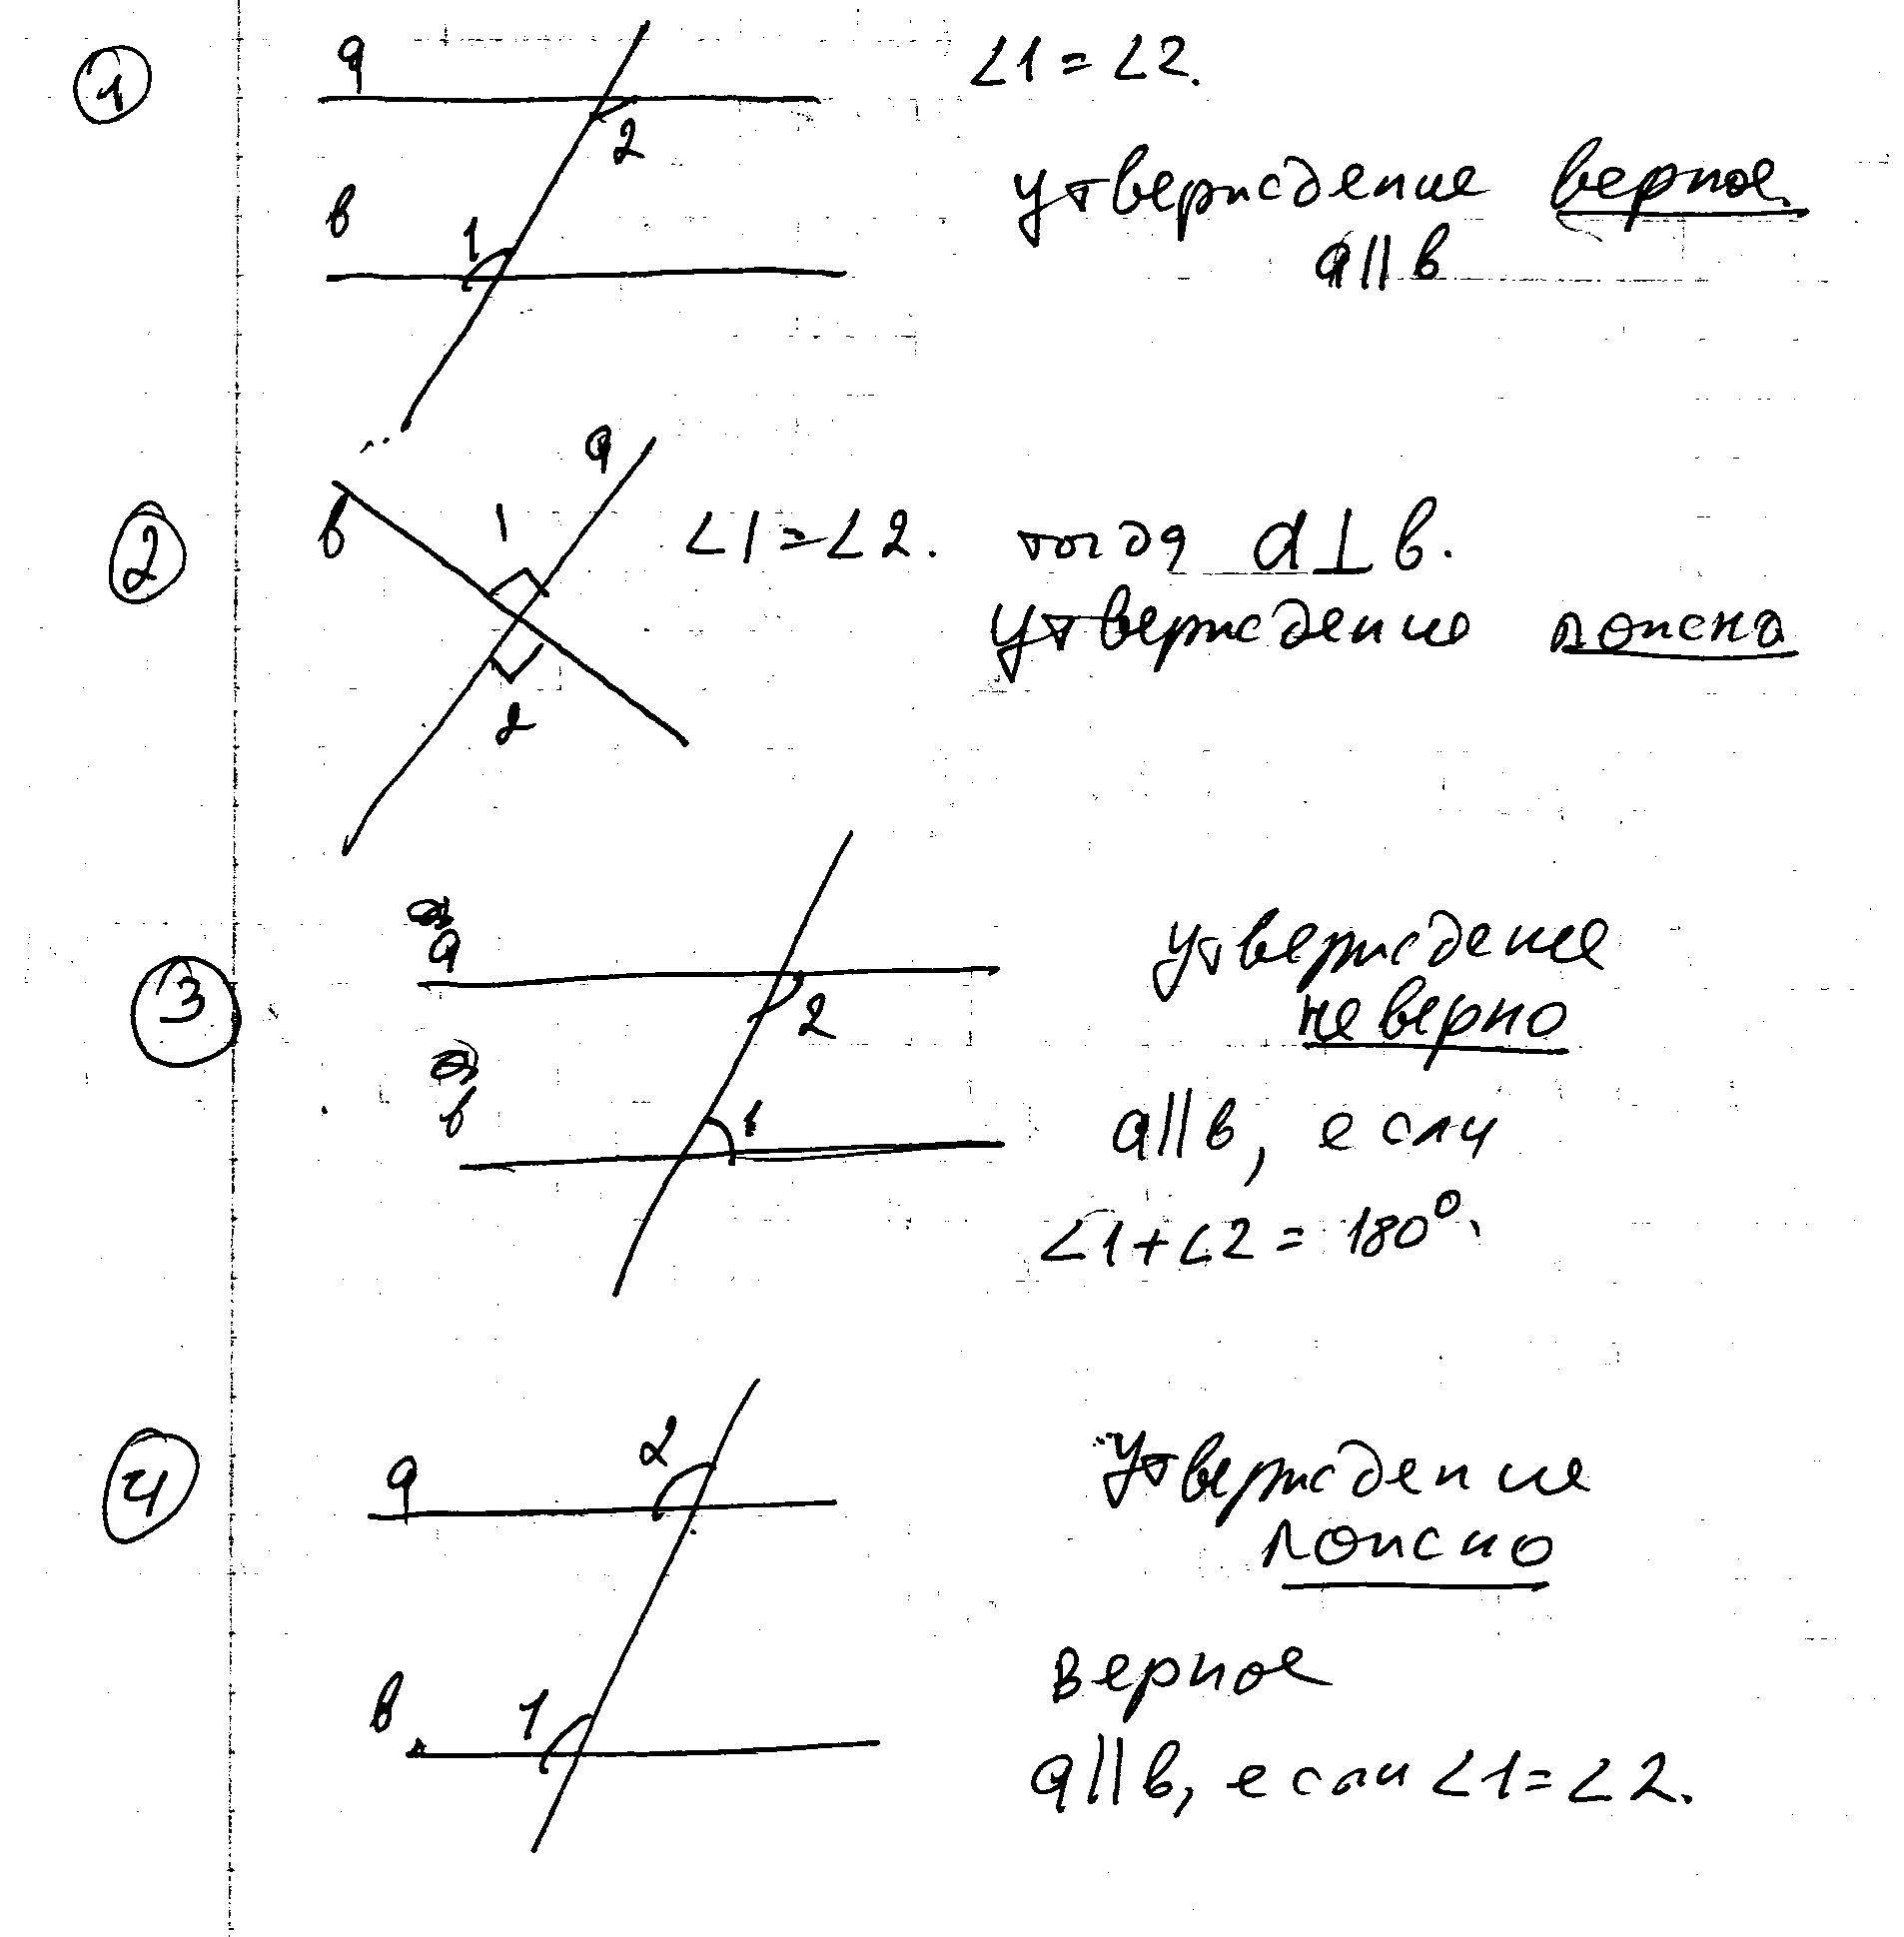 1
a
∠1 = ∠2.
2
утверждение верное
в
1
a || в
a
2
в
1
∠1 = ∠2. тогда a ⊥ в.
утверждение ложно
2
3
a
утверждение
2
неверно
в
1
a || в, если
∠1 + ∠2 = 180°.
4
a
2
утверждение
ложно
верное
в
1
a || в, если ∠1 = ∠2.